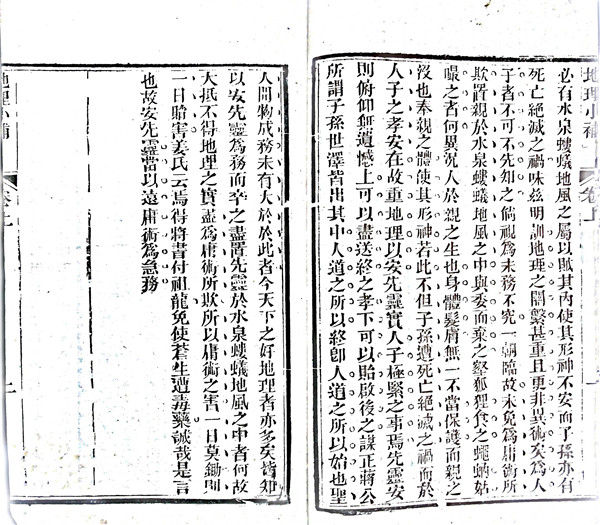 地理小補
卷上
必有水泉螻蟻地風之屬以賊其內使其形神不安而子孫亦有
死亡絕滅之禍味茲明訓地理之關繫甚重且更非異術矣為人
子者不可不先知之倘視為末務不究一朝臨故未免為庸術所
欺置親於水泉螻蟻地風之中與委而棄之壑狐狸食之蠅蚋姑
嘬之者何異況人於親之生也身體髮膚無一不當保護而親之
沒也奉親之體使其形神若此不但子孫遭死亡絕滅之禍而於
人子之孝安在故重地理以安先靈實人子極緊之事焉先靈安
則俯仰無遺憾上可以盡送終之孝下可以貽啟後之謀正蔣公
所謂子孫世澤皆出其中人道之所以終即人道之所以始也聖
人開物成務未有大於此者今天下之好地理者亦多矣皆知
以安先靈為務而卒之盡置先靈於水泉螻蟻地風之中者何故
大抵不得地理之實盡為庸術所欺所以庸術之害一日莫鋤則
一日貽害姜氏云焉得將書付祖龍免使蒼生遭毒藥誠哉是言
也故安先靈當以遠庸術為急務
地理小補
卷上